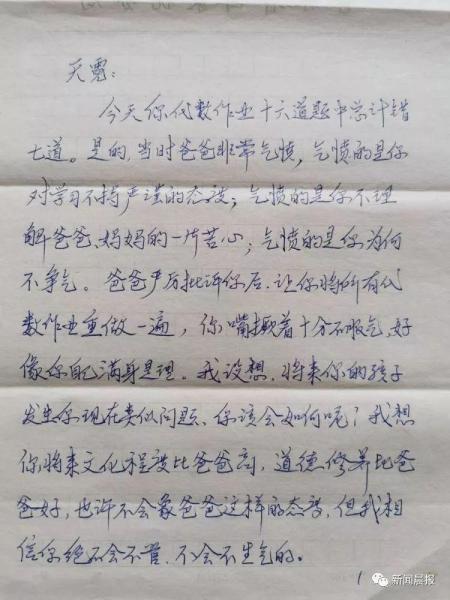 天霓：
今天你代数作业十六道题中总计错
七道。是的，当时爸爸非常气愤，气愤的是你
对学习不持严谨的态度；气愤的是你不理
解爸爸、妈妈的一片苦心；气愤的是你为何
不争气。爸爸严厉批评你后，让你将所有代
数作业重做一遍，你嘴撅着十分不服气，好
像你自己满身是理。我设想，将来你的孩子
发生你现在类似问题，你该会如何呢？我想
你将来文化程度比爸爸高，道德修养比爸
爸好，也许不会象爸爸这样的态度，但我相
信你绝不会不管，不会不生气的。
1
新闻晨报